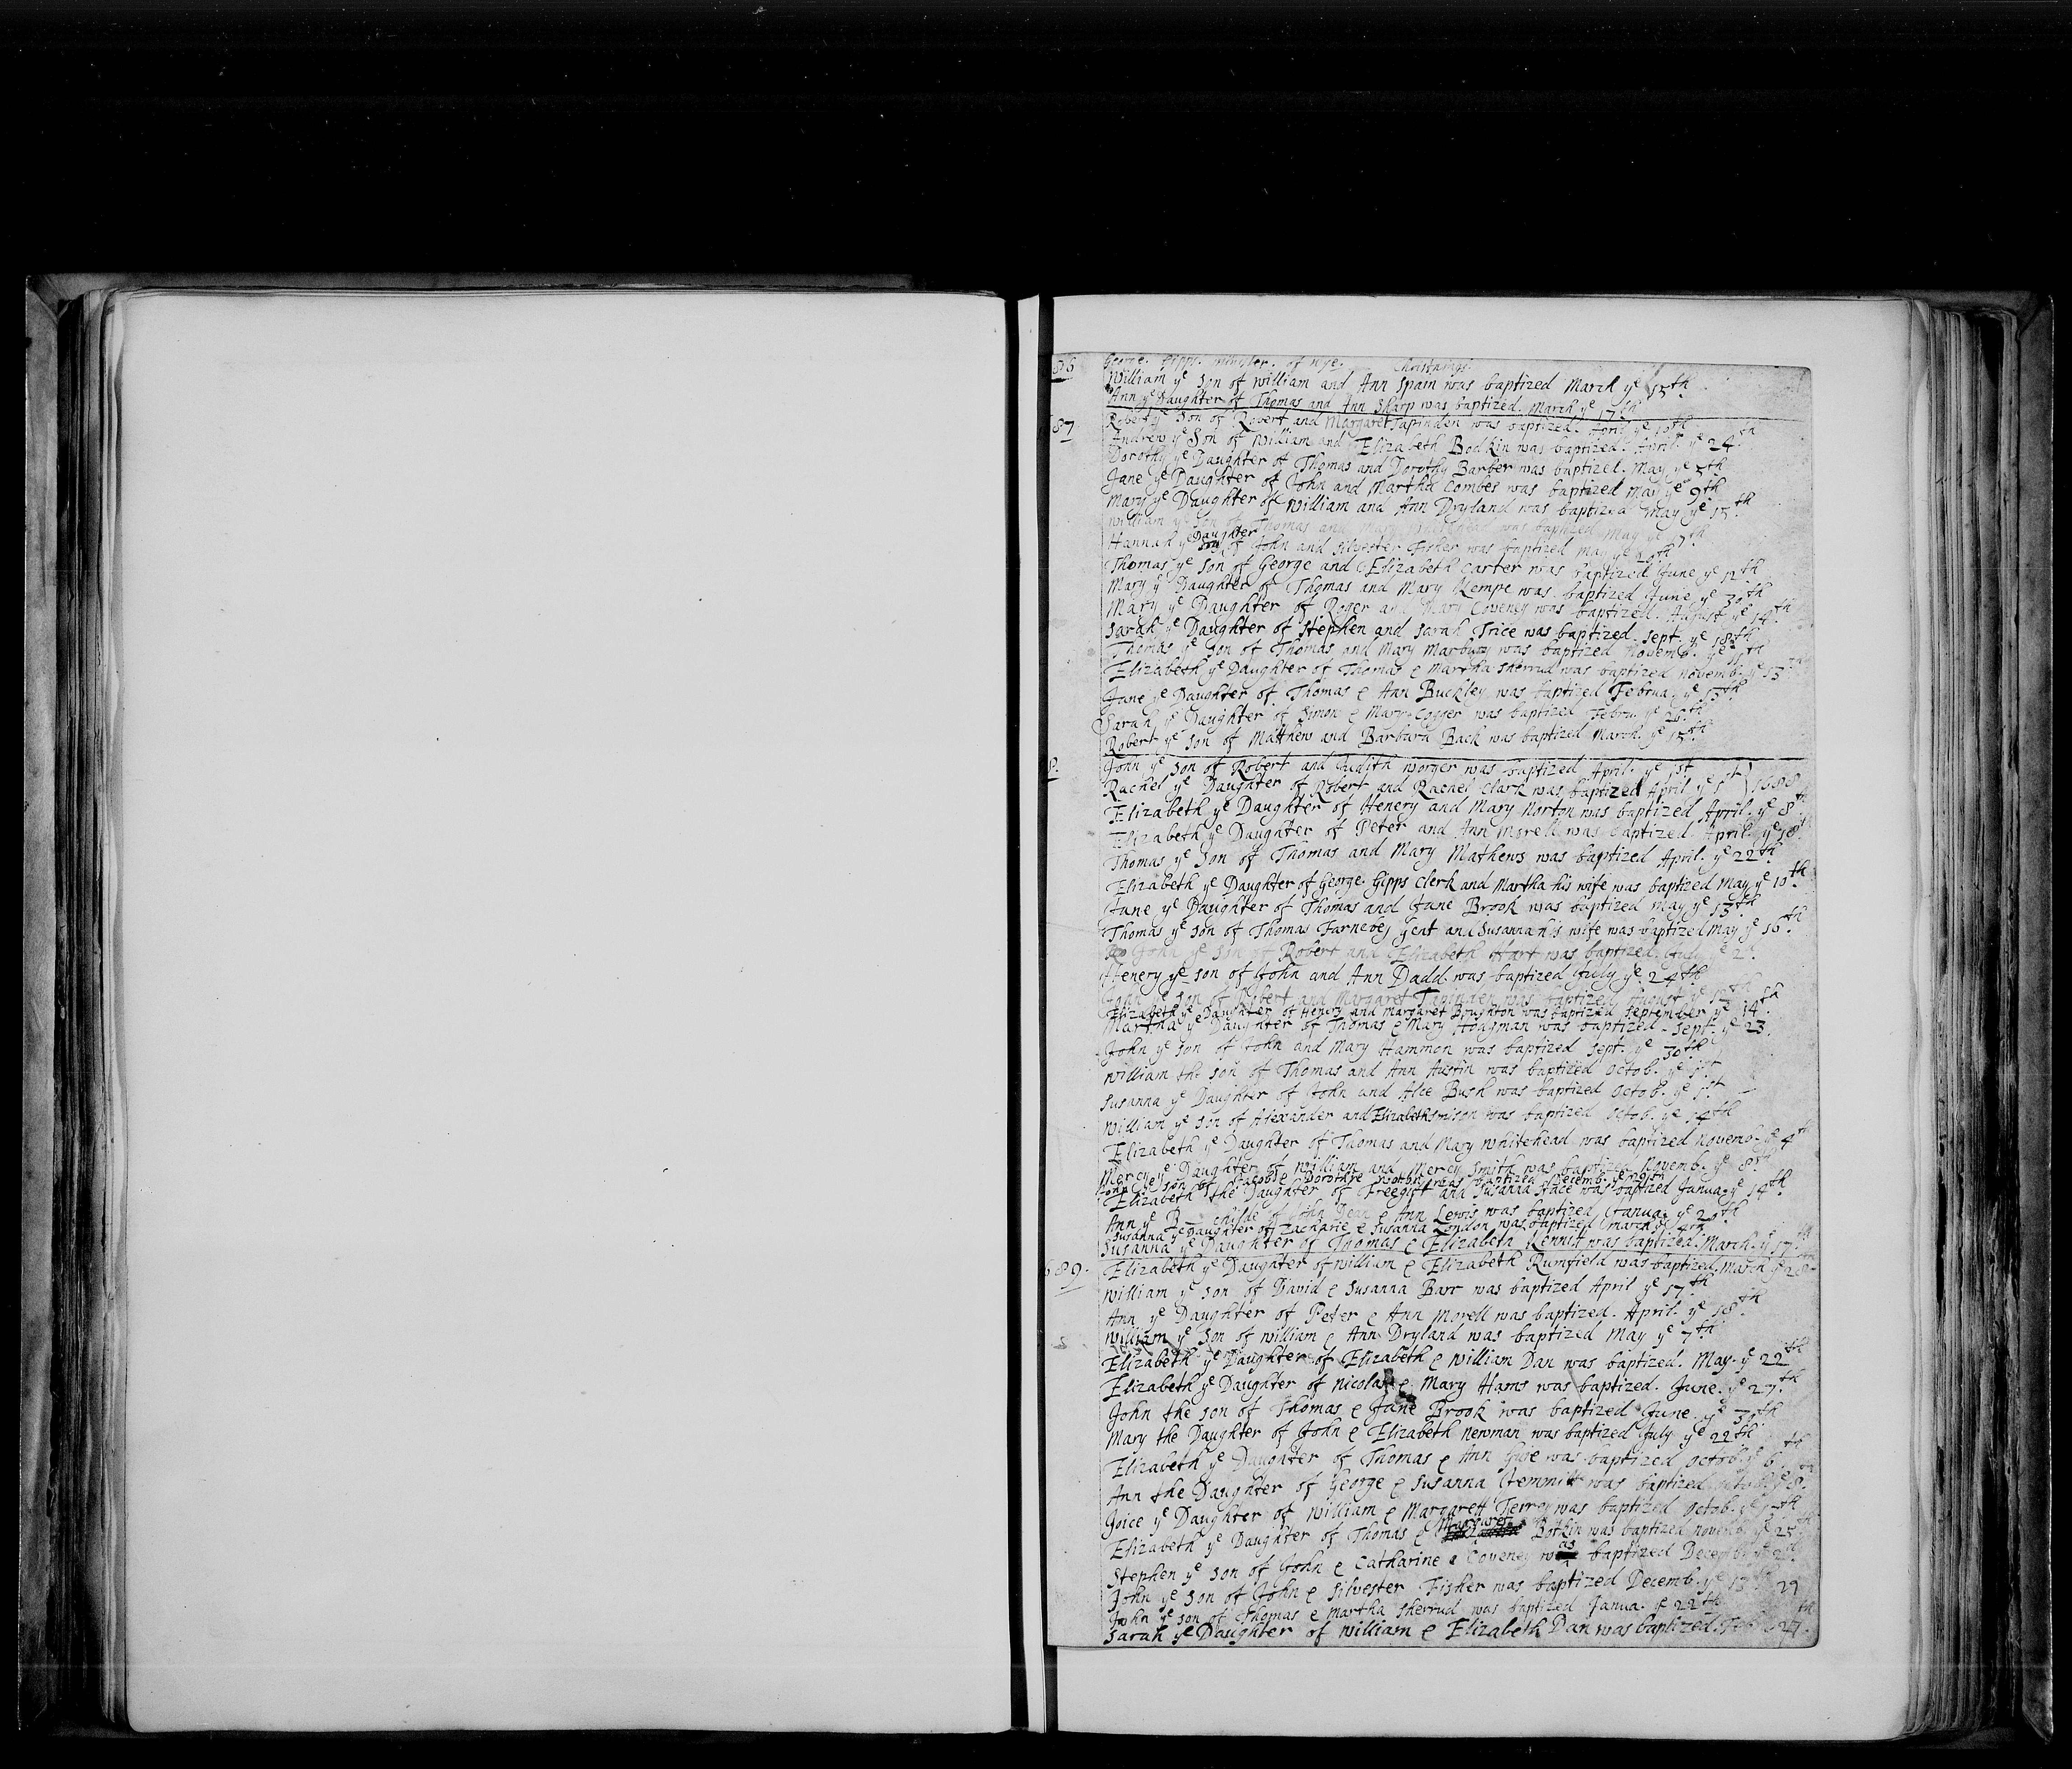 86 George Gipps minister of Wye. Christnings
William ye Son of William and Ann Spain was baptized March ye 15th
Ann ye Daughter of Thomas and Ann Sharp was baptized. March ye 17th
87 Robert ye Son of Robert and Margaret Tapinden was baptized. April ye 10th
Andrew ye Son of William and Elizabeth Bodkin was baptized. April. ye 24th
Dorothy ye Daughter of Thomas and Dorothy Barber was baptized. May ye 5th
Jane ye Daughter of John and Martha Combes was baptized May ye 9th
Mary ye Daughter of William and Ann Dryland was baptized May ye 15th
William ye Son of Thomas and Mary was baptized May ye 17th
Hannah ye Daughter of John and Silvester Fisher was baptized May ye 29th
Thomas ye Son of George and Elizabeth Carter was baptized June ye 12th
Mary ye Daughter of Thomas and Mary Kempe was baptized June ye 30th
Mary ye Daughter of Roger and Mary Coveney was baptized. August ye 14th
Sarah ye Daughter of Stephen and Sarah Price was baptized. Sept. ye 18th
Thomas ye Son of Thomas and Mary Marbury was baptized Novemb. ye 11th
Elizabeth ye Daughter of Thomas & Martha Sherrud was baptized novemb. ye 13
Jane ye Daughter of Thomas & Ann Buckley was baptized Februa. ye 13th
Sarah ye Daughter of Simon & Mary Cogger was baptized Febru. ye 26th
Robert ye Son of Matthew and Barbara Back was baptized March. ye 15th
8. John ye Son of Robert and Judith Worger was baptized April. ye 1st
Rachel ye Daughter of Robert and Rachel Clark was baptized April ye 1st } 1688
Elizabeth ye Daughter of Henery and Mary Norton was baptized April. ye 8th
Elizabeth ye Daughter of Peter and Ann Morell was baptized April. ye 18th
Thomas ye Son of Thomas and Mary Mathews was baptized April. ye 22th
Elizabeth ye Daughter of George Gipps Clerk and Martha his wife was baptized May ye 10th
Jane ye Daughter of Thomas and Jane Brook was baptized May ye 13th
Thomas ye son of Thomas Farnebey Gent and Susanna his wife was baptized May ye 16th
John ye Son of Robert and Elizabeth Hart was baptized. July ye 2d
Henery ye son of John and Ann Dadd was baptized July ye 24th
John ye Son of Robert and Margaret Tapinden was baptized August ye 12th
Elizabeth ye Daughter of Henry and Margaret Boughton was baptized September ye 14th
Martha ye Daughter of Thomas & Mary Hogsman was baptized Sept. ye 23.
John ye son of John and Mary Hammon was baptized Sept. ye 30th
William the Son of Thomas and Ann Austin was baptized Octob. ye 1st
Susanna ye Daughter of John and Alce Bush was baptized Octob. ye 1st
William ye Son of Alexander and Elizabeth was baptized Octob. ye 14th
Elizabeth ye Daughter of Thomas and Mary Whitehead was baptized Novemb. ye 4th
Mercy ye Daughter of William and Mercy Smith was baptized Novemb. ye 8th
John ye son of Jacob & Dorothie was baptized Decemb. ye 26th
Elizabeth the Daughter of Freegift and Susanna Stace was baptized Janua. ye 14th
Ann ye B childe of John Dean & Ann Lewis was baptized Janua. ye 20th
Susanna ye Daughter of Zacharie & Susanna London was baptized March ye 4th
Susanna ye Daughter of Thomas & Elizabeth Kennit was baptized. March. ye 17th
689. Elizabeth ye Daughter of William & Elizabeth Rumfield was baptized. March ye 28th
William ye Son of David & Susanna Barr was baptized April ye 17th
Ann ye Daughter of Peter & Ann Morell was baptized. April. ye 18th
William ye Son of William & Ann Dryland was baptized May ye 7th
Elizabeth ye Daughter of Elizabeth & William Dan was baptized. May. ye 22th
Elizabeth ye Daughter of Nicolas & Mary Hams was baptized. June. ye 27th
John the Son of Thomas & Jane Brook was baptized June. ye 30th
Mary the Daughter of John & Elizabeth Newman was baptized July ye 22th
Elizabeth ye Daughter of Thomas & Ann was baptized Octob. ye 6th
Ann the Daughter of George & Susanna Jemmitt was baptized Octob. ye 8.
Joice ye Daughter of William & Margarett Terrey was baptized Octob. ye
Elizabeth ye Daughter of Thomas & Margaret Botkin was baptized novemb. ye 25th
Stephen ye Son of John & Catharine Coveney was baptized Decemb. ye
John ye Son of John & Silvester Fisher was baptized Decemb. ye 29
John ye son of Thomas & Martha Sherrud was baptized Janua. ye 22th
Sarah ye Daughter of William & Elizabeth Dan was baptized. Feb 24th